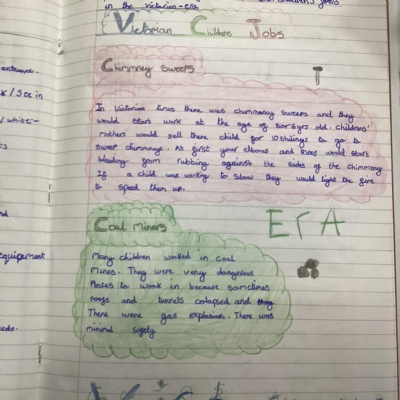 in the victorian-era
Victorian Childrens Jobs
entrance-
Chimney Sweeps
k / See in
/ white:-
In Victorian times there was chimmaney sweeps and they
would start work at the age of 5 or 6yrs old. Childrens'
mothers would sell there child for 10 shillings to go to
sweep chimmneys. At first your elbows and knees would start
bleeding from rubbing against the sides of the chimmaney
If a child was working to slow they would light the fire
to speed them up.
ERA
Coal miners
equipement
Many children worked in coal
Mines. They were very dangerous
Places to work in because sometimes
roofs and tunnels colapsed and they
There were gas explosions. There was
minimal safety
eeds.